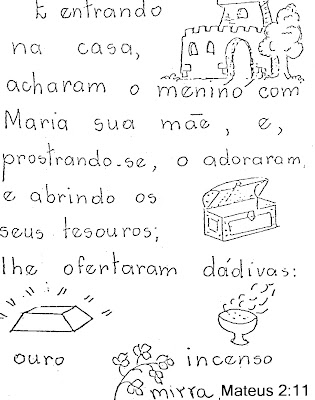 E entrando
na casa,
acharam o menino com
Maria sua mãe, e,
prostrando-se, o adoraram,
e abrindo os
seus tesouros;
lhe ofertaram dádivas:
ouro incenso
mirra, Mateus 2:11